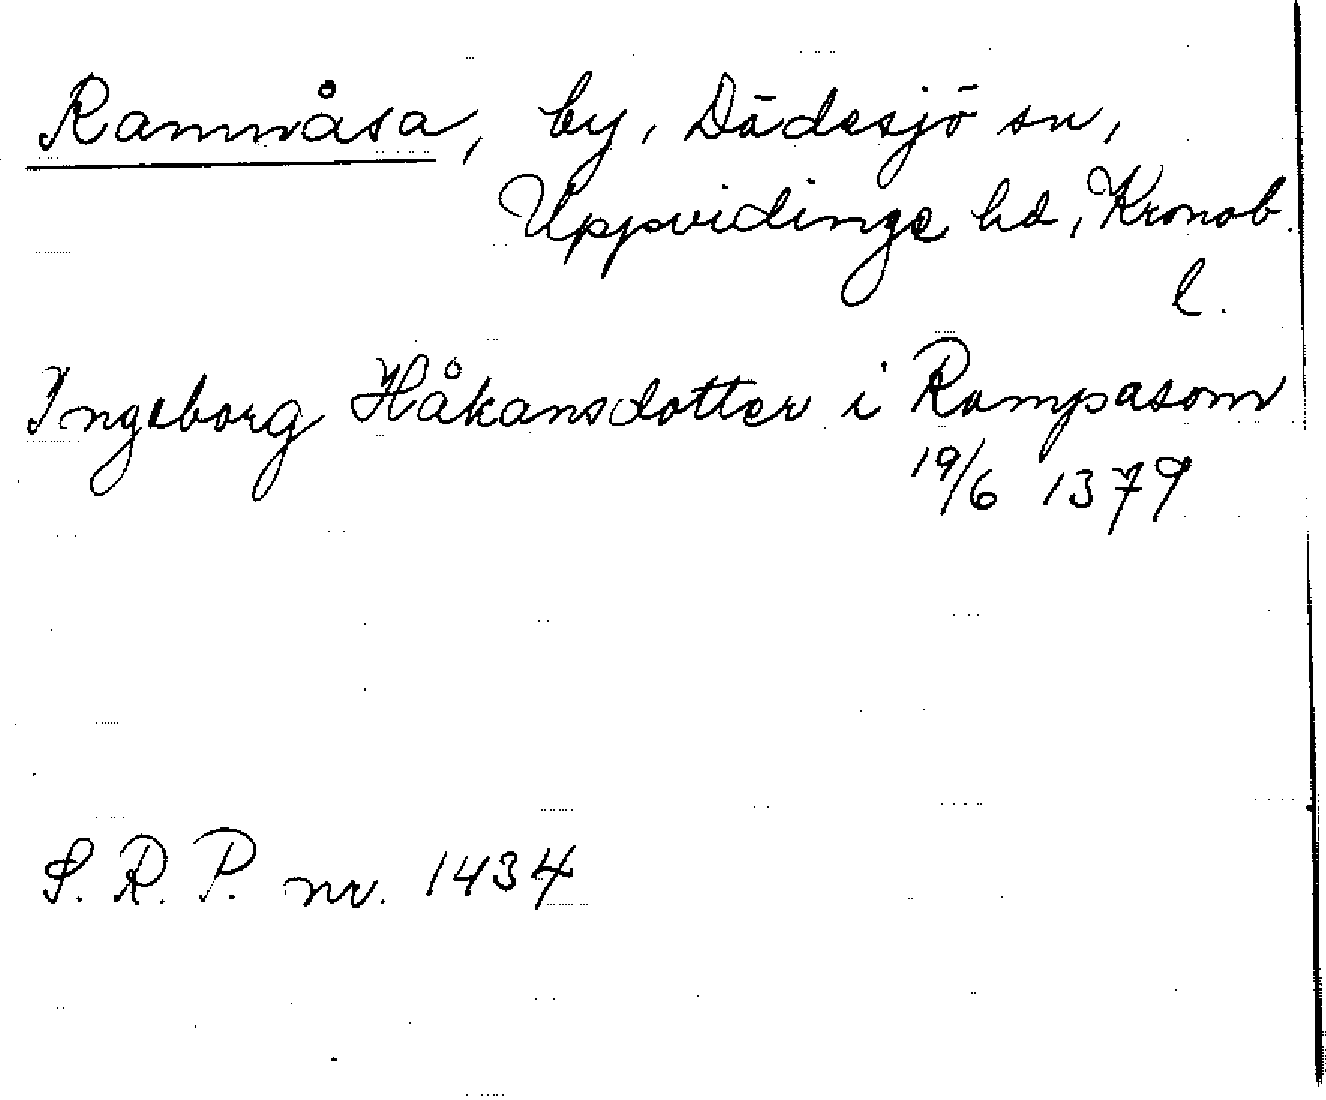 Ramnåsa, by, Dädesjö sn,
Uppvidinge hd, Kronob.
l.
Ingeborg Håkansdotter i Rampasom
19/6 1379
S. R. P. nr. 1434